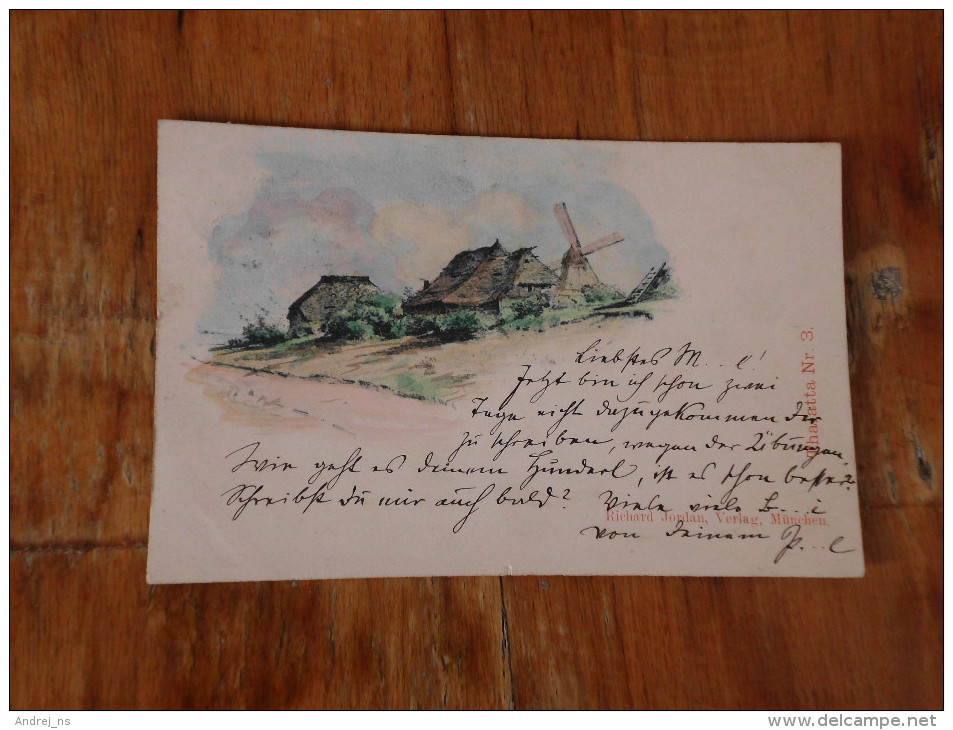 Liebstes M...e!
Jetzt bin ich schon zwei
Tage nicht dazugekommen dir
zu schreiben, wegen der Übungen.
Wie geht es deinem Hunderl, ist es schon besser?
Schreibst du mir auch bald? Viele viele B...i
von deinem P...e
Charatta Nr. 3.
Richard Jordan, Verlag, München.
Andrej_ns
http://www.delcampe.net